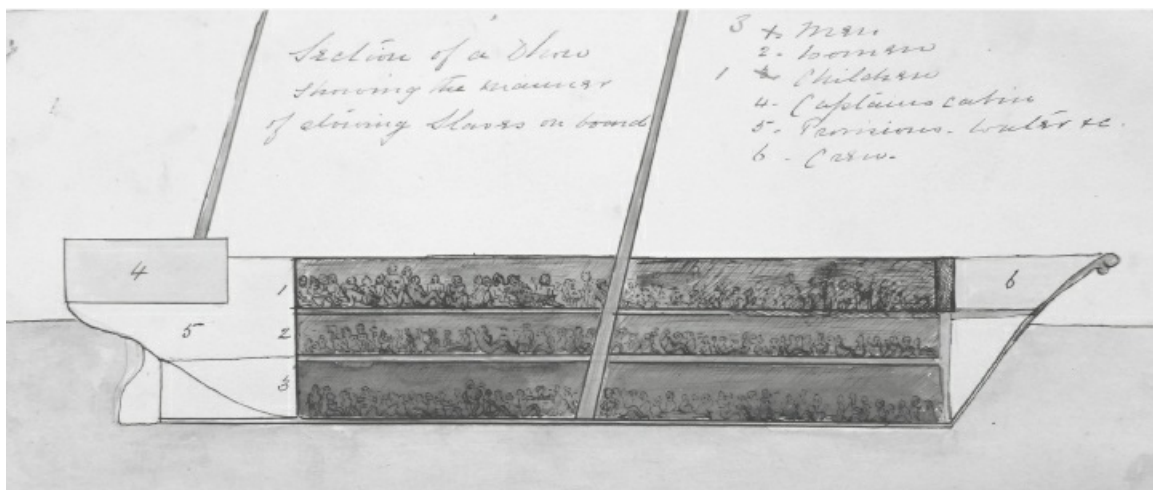 Section of a Dhow
showing the manner
of stowing Slaves on board
3 Men
2. Women
1 Children
4. Captains cabin
5. Provisions. Water &c.
6. Crew.
4
5
1
2
3
6